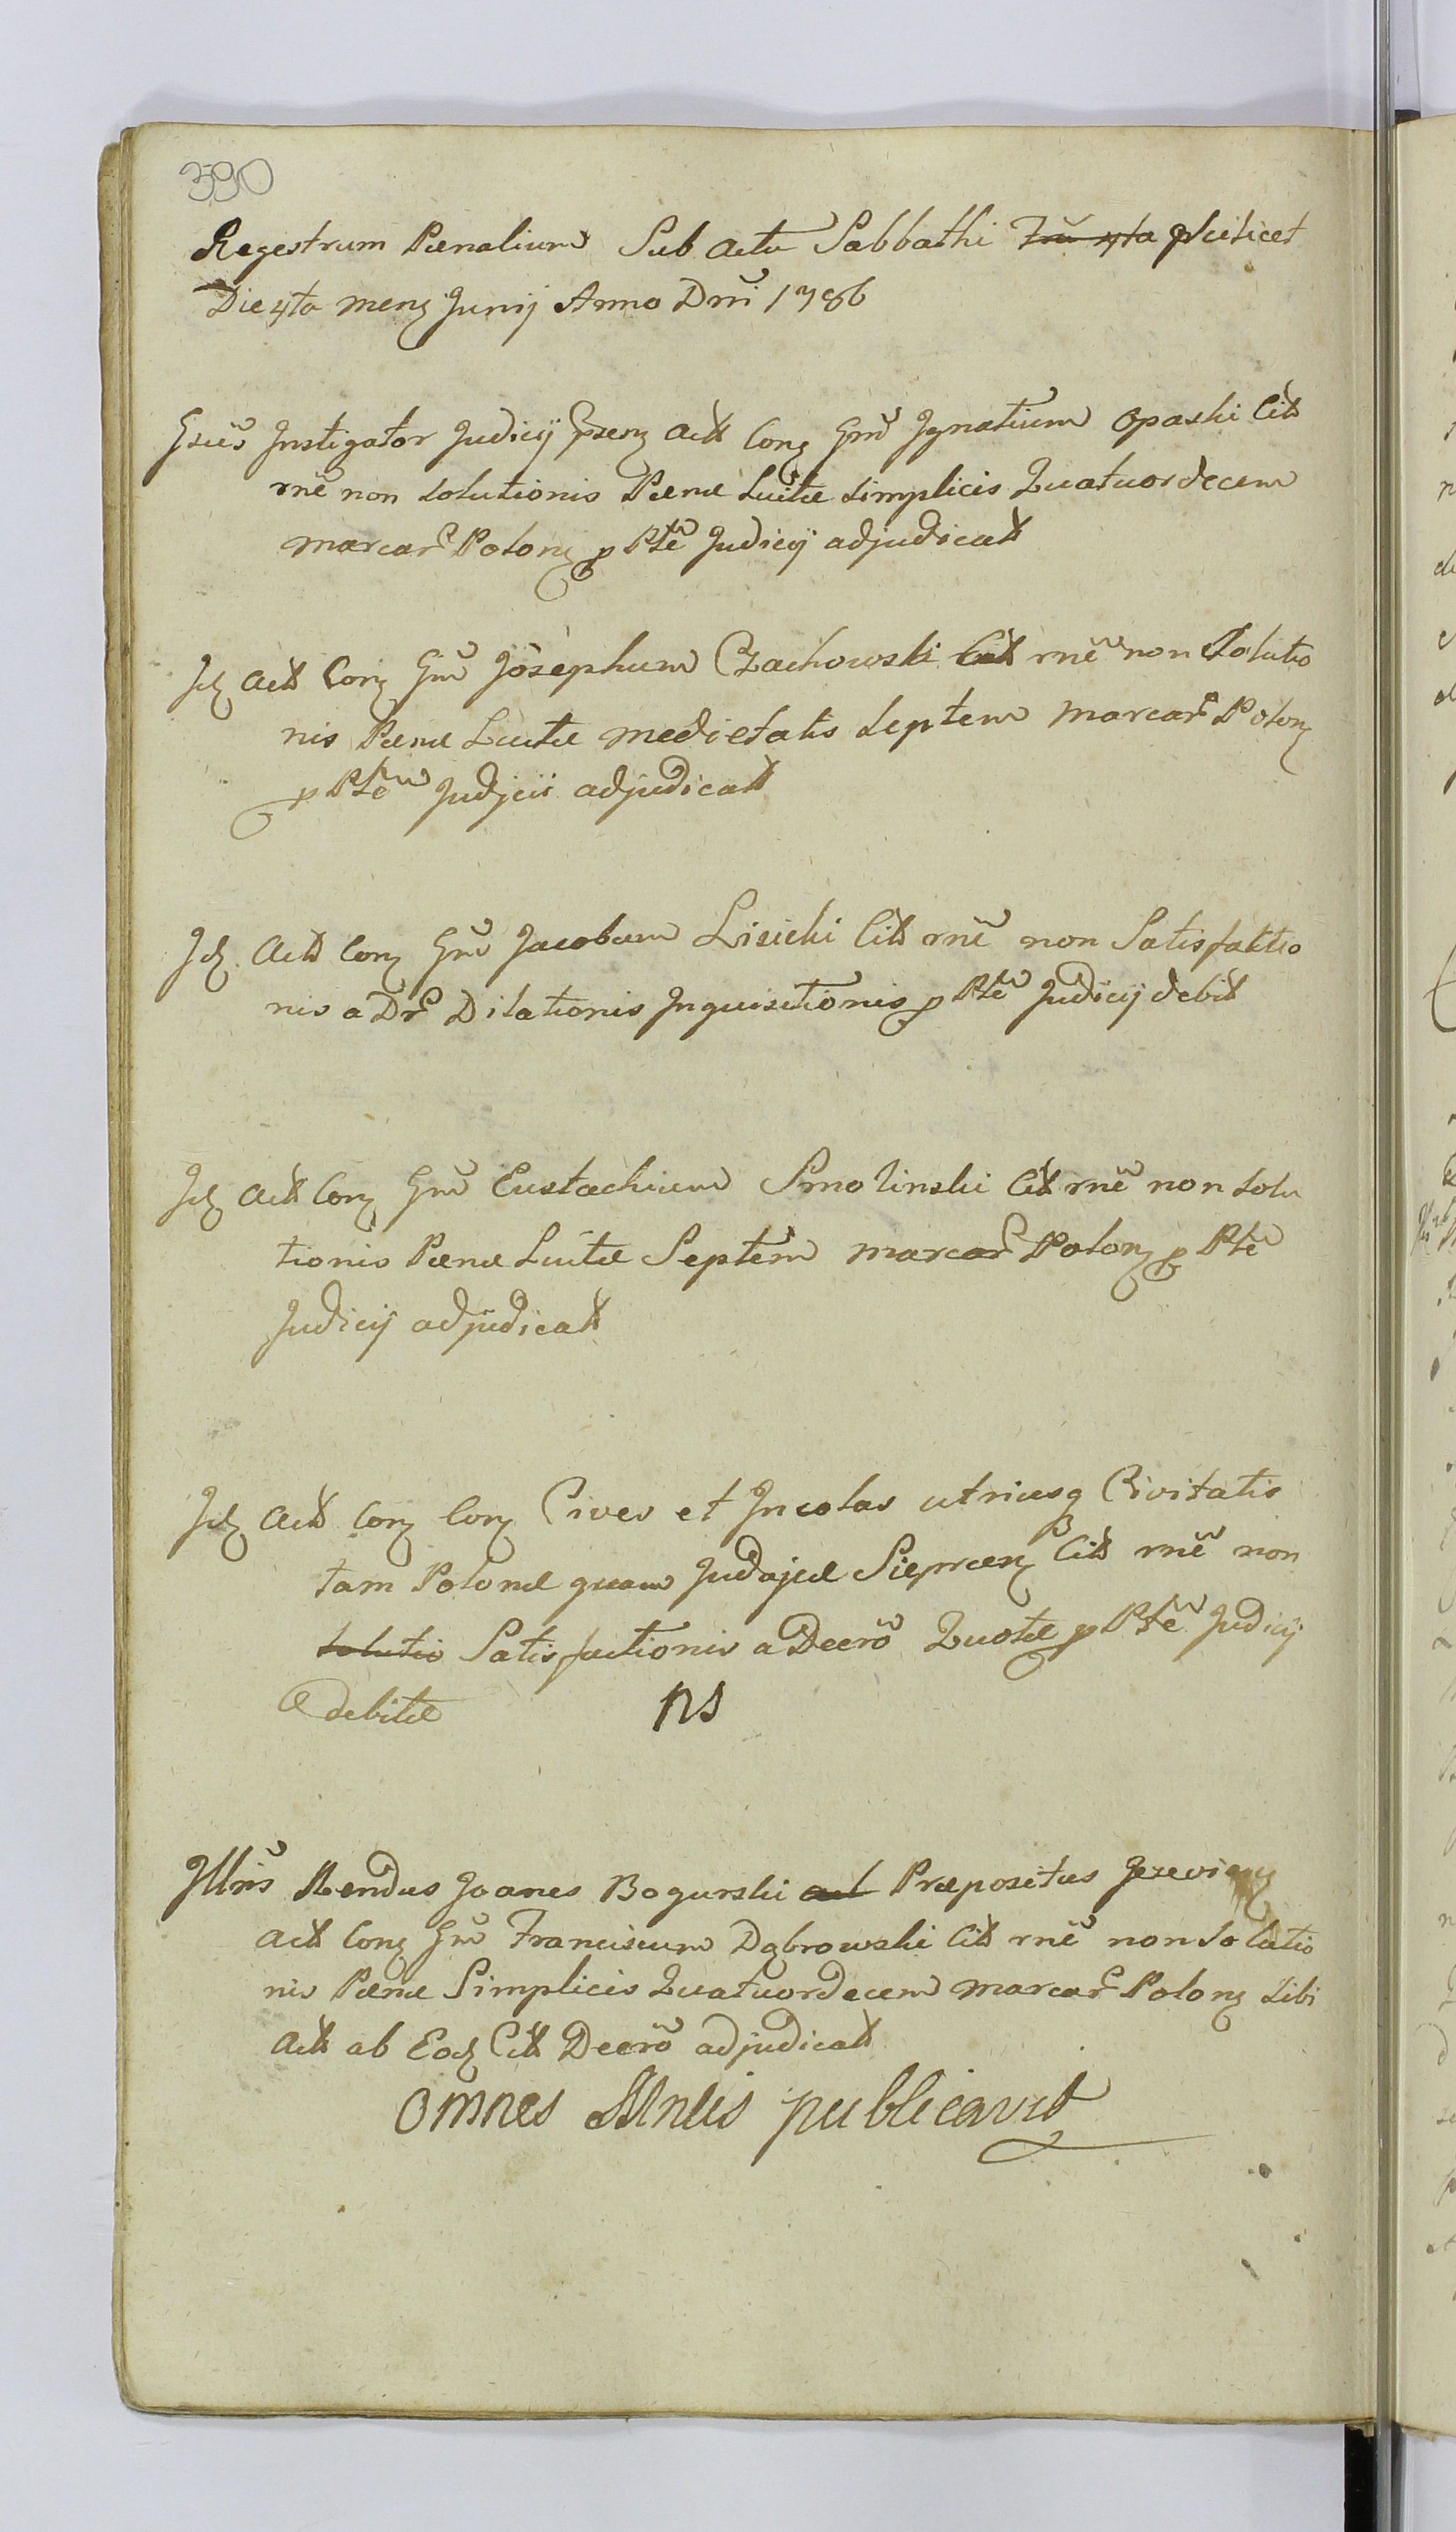 390
Regestrum Pænalium Sub Actu Sabbathi scilicet
Die 4ta Menẓ Junij Anno Dnĩ 1786
Gsũs Instigator Judicij Pñsenẓ Actt Conẓ Gnũ Ignatium Opaski Citt
rnẽ non solutionis Pænæ Luitæ simplicis Quatuordecem
marcar Polonẓ p Ptẽ Judicij adjudicatt
Idẓ Actt Conẓ Gnũ Josephum Czachowski Citt rnẽ non Solutio
nis Pænæ Luitæ medietatis Septem Marcar Polonẓ
p Ptẽ Judicii adjudicatt
Idẓ Actt Conẓ Gnũ Jacobum Lisicki Citt rnẽ non Satisfactio
nis a Dr Dilationis Inquisitionis p Ptẽ Judicij debitt
Idẓ Actt Conẓ Gnũ Eustachium Smolinski Citt rnẽ non solu
tionis Pænæ Luitæ Septem marcar Polonẓ p Ptẽ
Judicij adjudicatt
Idẓ Actt Conẓ Conẓ Cives et Incolas utriusq Civitatis
tam Polonæ quam Judajcæ Sieprcenẓ Citt rnẽ non
solutio Satisfactionis a Decrõ Quotæ p Ptẽ Judicij
debitæ ns
Illris Rendus Joanes Bogurski Præpositus
Actt Conẓ Gnũ Franciscum Dąbrowski Citt rnẽ non Solutio
nis Pænæ Simplicis Quatuordecem Marcar Polonẓ Sibi
Actt ab Eodẓ Citt Decrõ adjudicatt
Omnes publicavit